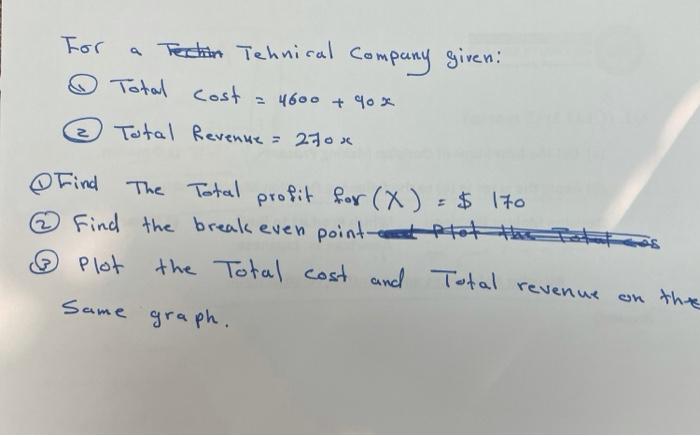 For a Tehnical Company given:
① Total cost = 4600 + 90x
② Total Revenue = 270x
① Find The Total profit for (X) = $ 170
② Find the breakeven point
③ Plot the Total cost and Total revenue on the
Same graph.